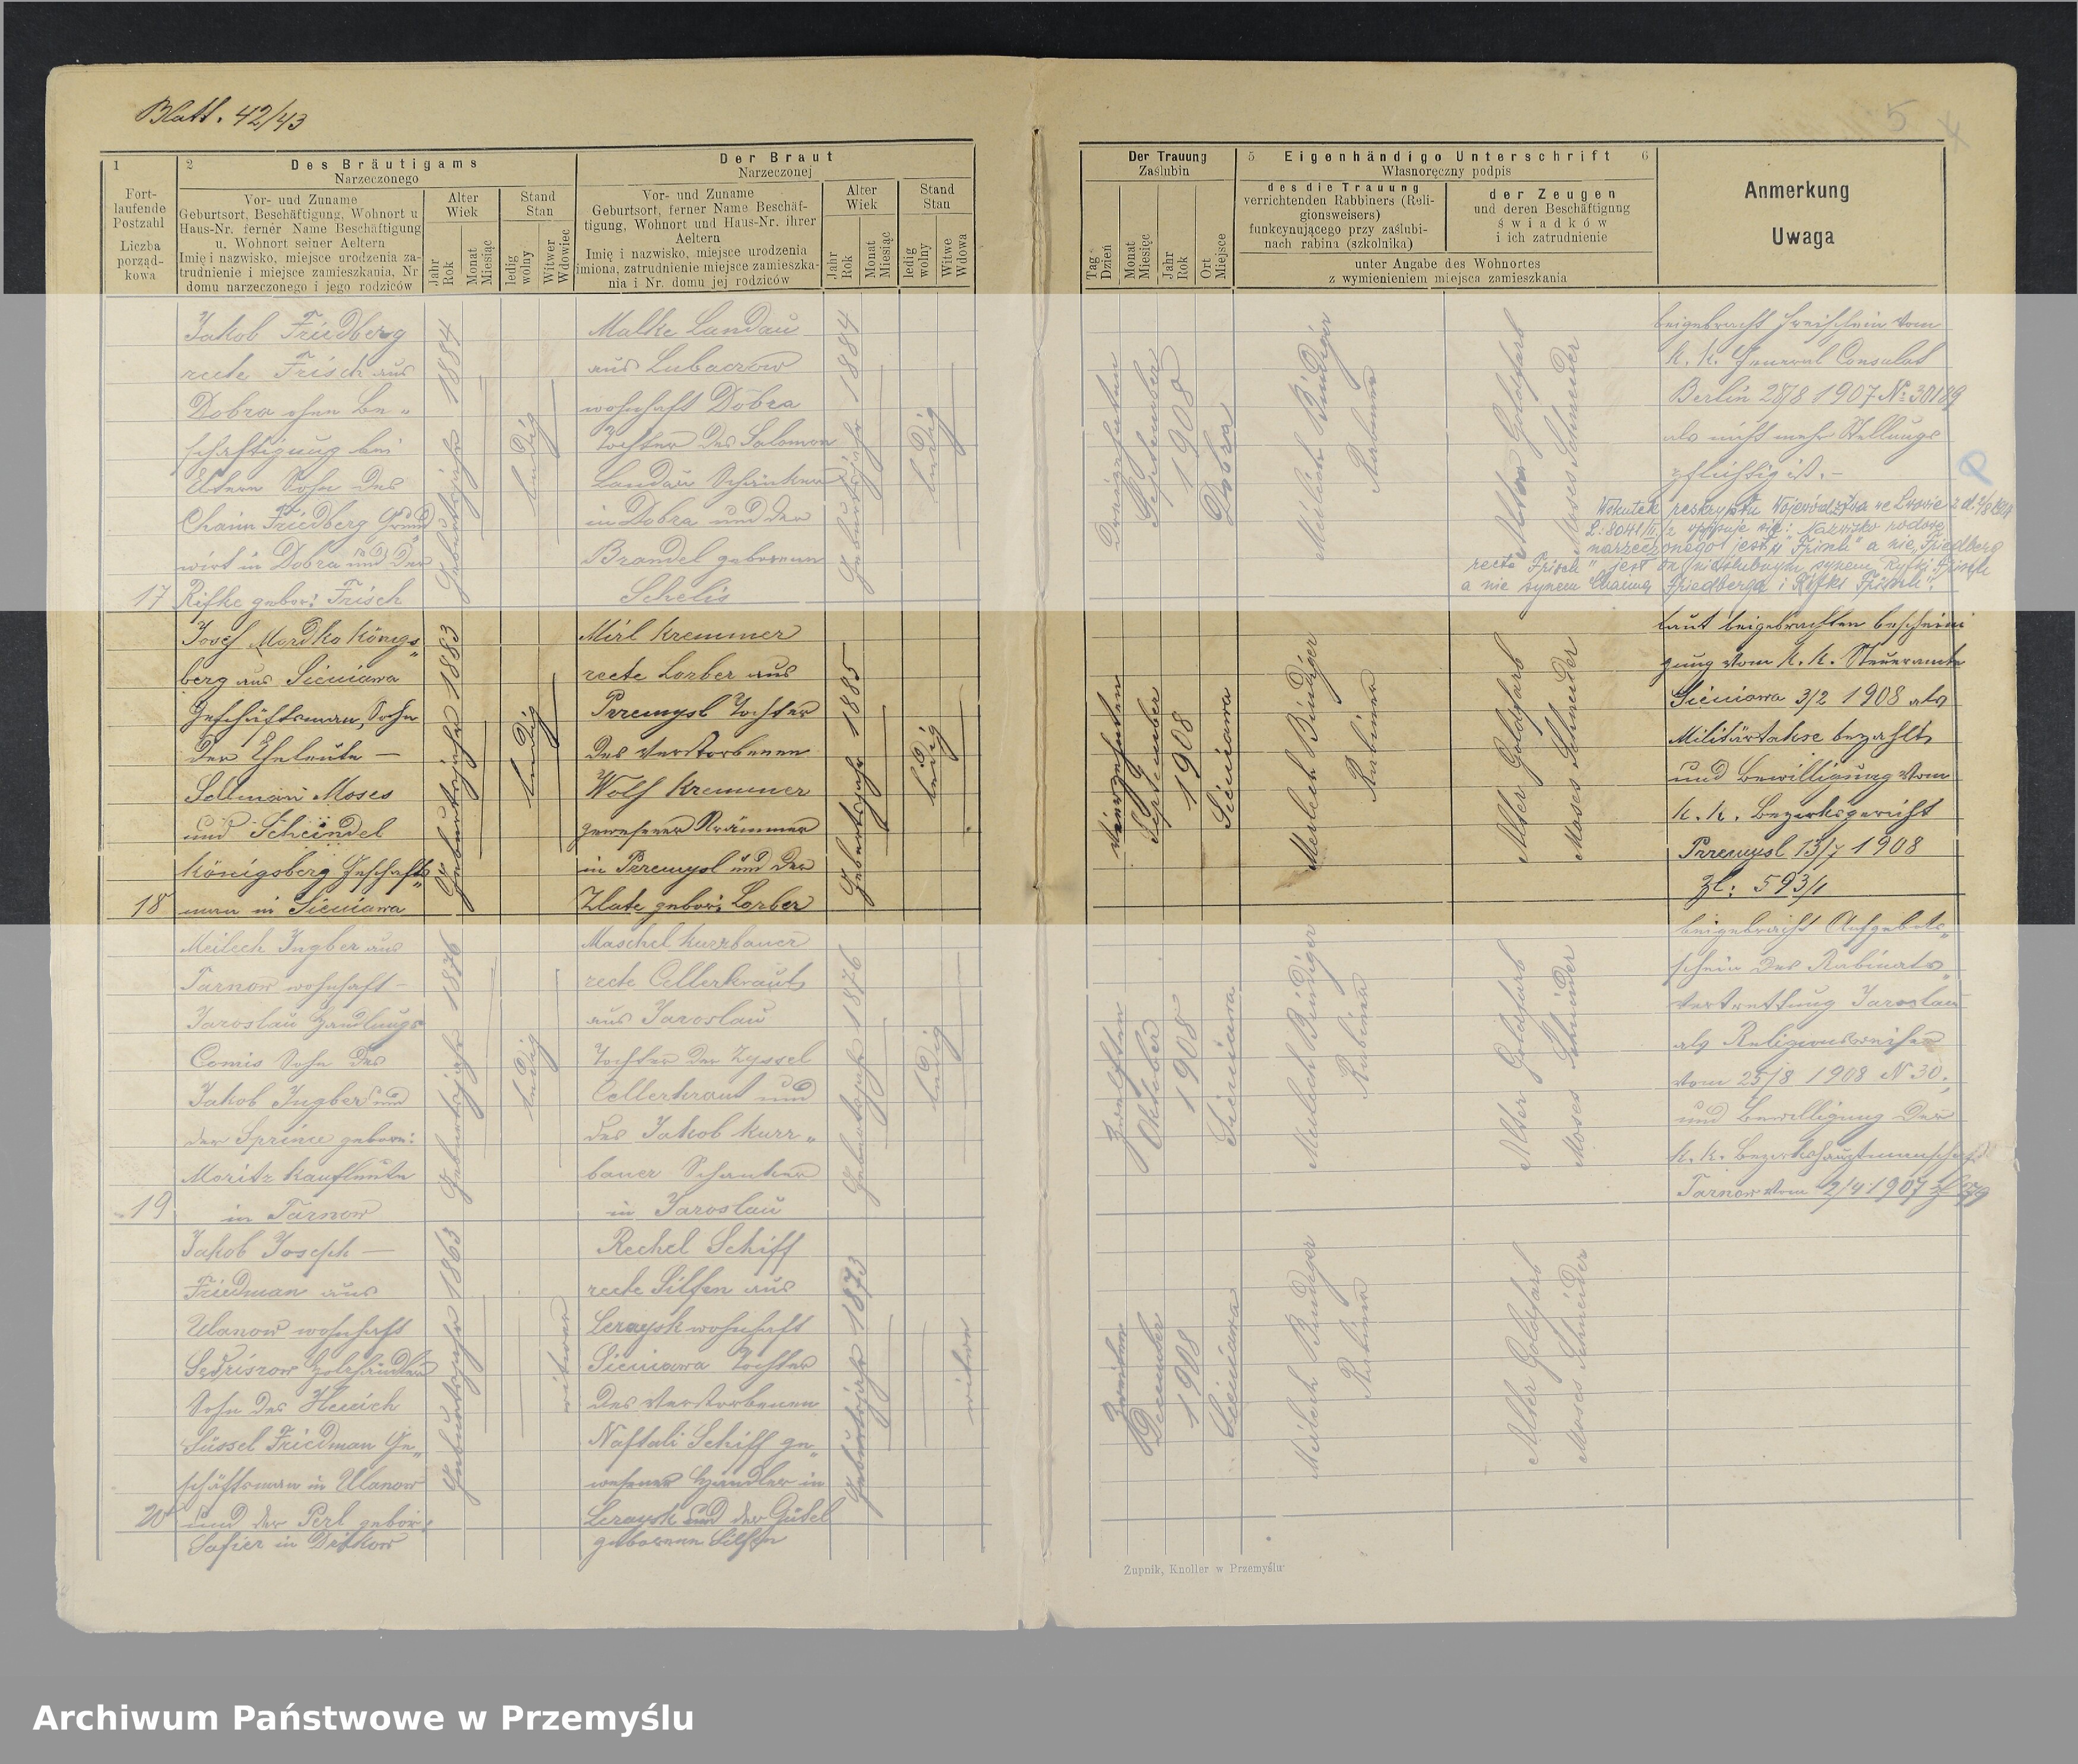 Blatt. 42/43
5
4
1
Fort-
laufende
Postzahl
Liczba
porząd-
kowa
2 Des Bräutigams
Narzeczonego
Vor- und Zuname
Geburtsort, Beschäftigung, Wohnort u
Haus-Nr. ferner Name Beschäftigung
u. Wohnort seiner Aeltern
Imię i nazwisko, miejsce urodzenia za-
trudnienie i miejsce zamieszkania, Nr
domu narzeczonego i jego rodziców
Alter
Wiek
Jahr
Rok
Monat
Miesiąc
Stand
Stan
ledig
wolny
Witwer
Wdowiec
Der Braut
Narzeczonej
Vor- und Zuname
Geburtsort, ferner Name Beschäf-
tigung, Wohnort und Haus-Nr. ihrer
Aeltern
Imię i nazwisko, miejsce urodzenia
imiona, zatrudnienie miejsce zamieszka-
nia i Nr. domu jej rodziców
Alter
Wiek
Jahr
Rok
Monat
Miesiąc
Stand
Stan
ledig
wolny
Witwe
Wdowa
Der Trauung
Zaślubin
Tag
Dzień
Monat
Miesięc
Jahr
Rok
Ort
Miejsce
5 Eigenhändige Unterschrift 6
Własnoręczny podpis
des die Trauung
verrichtenden Rabbiners (Reli-
gionsweisers)
funkcynującego przy zaślubi-
nach rabina (szkolnika)
der Zeugen
und deren Beschäftigung
świadków
i ich zatrudnienie
unter Angabe des Wohnortes
z wymienieniem miejsca zamieszkania
Anmerkung
Uwaga
17
Jakob Friedberg
recte Frisch aus
Dobra ohne Be-
schäftigung bei
Eltern Sohn des
Chaim Friedberg Grund
wirt in Dobra und der
Rifke gebor: Frisch
Geburtsjahr 1884
ledig
Malke Landau
aus Lubaczow
wohnhaft Dobra
Tochter des Salomon
Landau Schänker
in Dobra und der
Brandel geborenen
Schelis
Geburtsjahr 1884
ledig
Dreizehnten
September
1908
Dobra
Meilech Bindiger
Rabiner
Alter Goldfarb
Moses Schneider
beigebracht Freischein vom
k. k. General Consulat
Berlin 28/8 1907 No: 30189
als nicht mehr Stellungs
pflichtig ist.-
Wskutek reskryptu Województwa we Lwowie z d.
wpisuje się: Nazwisko rodowe
narzeczonego jest „Frisch" a nie „Friedberg
recte Frisch" jest on nieślubnym synem Ryfki Frisch
a nie synem Chaima Friedberga i Ryfki Frisch".
18
Josef Mordko Königs-
berg aus Sieniawa
Geschäftsman, Sohn
der Eheleute —
Selman Moses
und Scheindel
Königsberg Geschäfts-
man in Sieniawa
Geburtsjahr 1883
ledig
Mirl Kremmer
recte Lorber aus
Przemysl Tochter
des verstorbenen
Wolf Kremmer
gewesener Krämmer
in Przemysl und der
Zlate gebor: Lorber
Geburtsjahr 1885
ledig
vierzehnten
September
1908
Sieniawa
Meilech Bindiger
Rabiner
Alter Goldfarb
Moses Schneider
laut beigebrachten bescheini
gung vom k. k. Steueramte
Sieniawa 3/2 1908 als
Militärtakse bezahlt
und bewilligung vom
k. k. Bezirksgericht
Przemysl 13/7 1908
Zl: 593/1
19
Meilech Ingber aus
Tarnow wohnhaft –
Jaroslau Handlungs
Comis Sohn des
Jakob Ingber und
der Sprince gebore:
Moritz Kaufleute
in Tarnow
Geburtsjahr 1876
ledig
Maschel Kurzbauer
recte Cellerkraut
aus Jaroslau
Tochter der Zyssel
Cellerkraut und
des Jakob Kurz-
bauer Schanker
in Jaroslau
Geburtsjahr 1876
ledig
Zwölften
Oktober
1908
Sieniawa
Meilech Bindiger
Rabiner
Alter Goldfarb
Moses Schneider
beigebracht Aufgebots-
schein des Rabinats-
vertrettung Jaroslau
als Religionsweiser
vom 25/8 1908 N 30.
und Bewilligung der
k. k. Bezirkshauptmanschaft
Tarnow vom 2/4 1907
20
Jakob Joseph —
Friedman aus
Ulanow wohnhaft
Sędziszow Holzhändler
Sohn des Henich
Süssel Friedman Ge-
schäftsman in Ulanow
und der Perl gebor:
Safier in Ditkow
Geburtsjahr 1863
witwer
Rechel Schiff
recte Silfen aus
Lezaysk wohnhaft
Sieniawa Tochter
des verstorbenen
Naftali Schiff ge-
wesener Handler in
Lezaysk und der Gütel
geborenen Silfen
Geburtsjahr 1873
witwe
Zweiten
Dezember
1908
Sieniawa
Meilech Bindiger
Rabiner
Alter Goldfarb
Moses Schneider
Żupnik, Knoller w Przemyślu
Archiwum Państwowe w Przemyślu